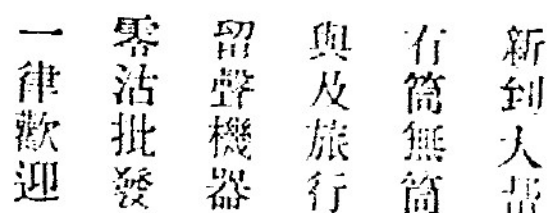 新到大幇
有筒無筒
與及旅行
留聲機器
零沽批發
一律歡迎